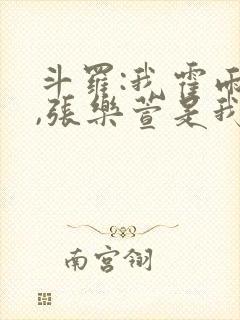 斗羅:我霍雨
,張樂萱是我
南宮翎